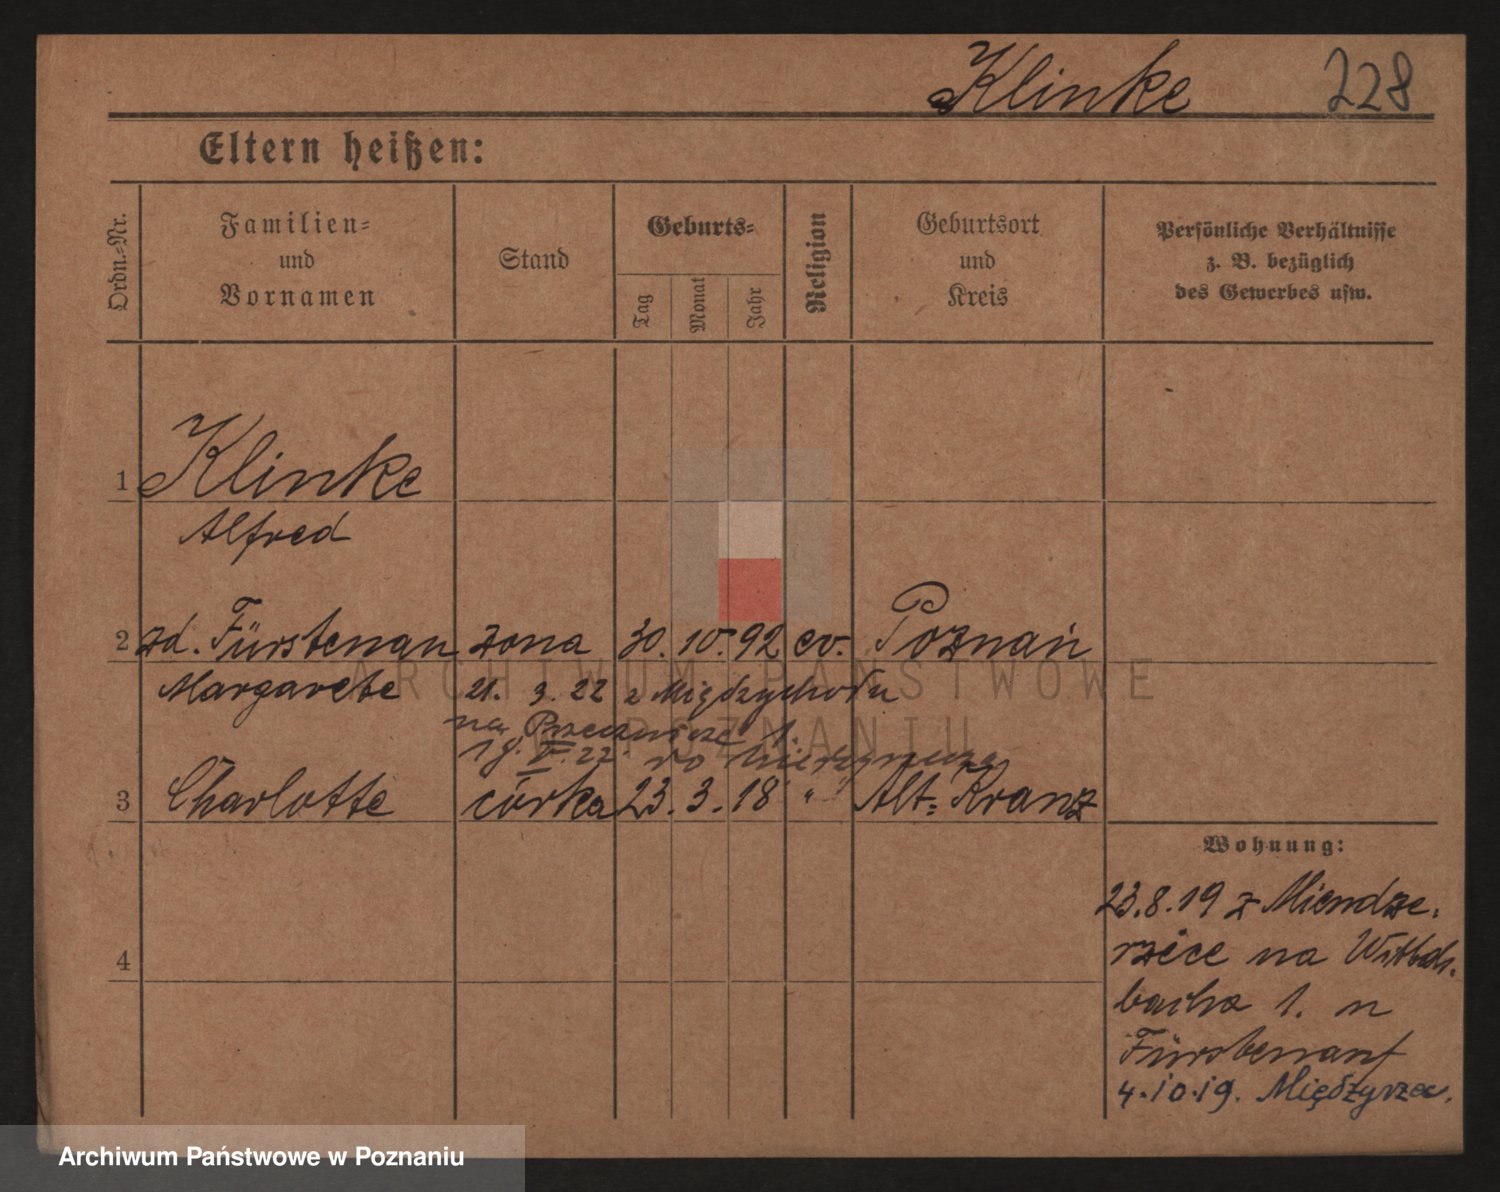 Klinke 228
Eltern heißen:
Ordn.-Nr.
Familien-
und
Vornamen
Stand
Geburts-
Tag
Monat
Jahr
Religion
Geburtsort
und
Kreis
Persönliche Verhältnisse
z. B. bezüglich
des Gewerbes usw.
1 Klinke
Alfred
2 zd. Fürstenau żona 30. 10. 92 ev. Poznań
Margarete 21. 3. 22 z Międzychodu
na 1.
22. do
3 Charlotte córka 23. 3. 18 " " Alt-Kranz
Wohnung:
23.8.19 z Miendze-
rzice na
bacha 1. u
Fürstenau
4.10.19. Międzyrzec.
4
ARCHIWUM PAŃSTWOWE
W POZNANIU
Archiwum Państwowe w Poznaniu